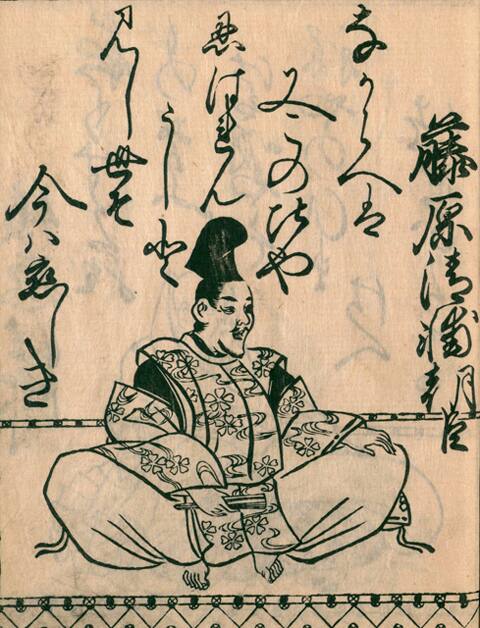 藤原清輔朝臣
なからへは
又この比や
忍はれん
うしと
見し世そ
今ハ恋しき